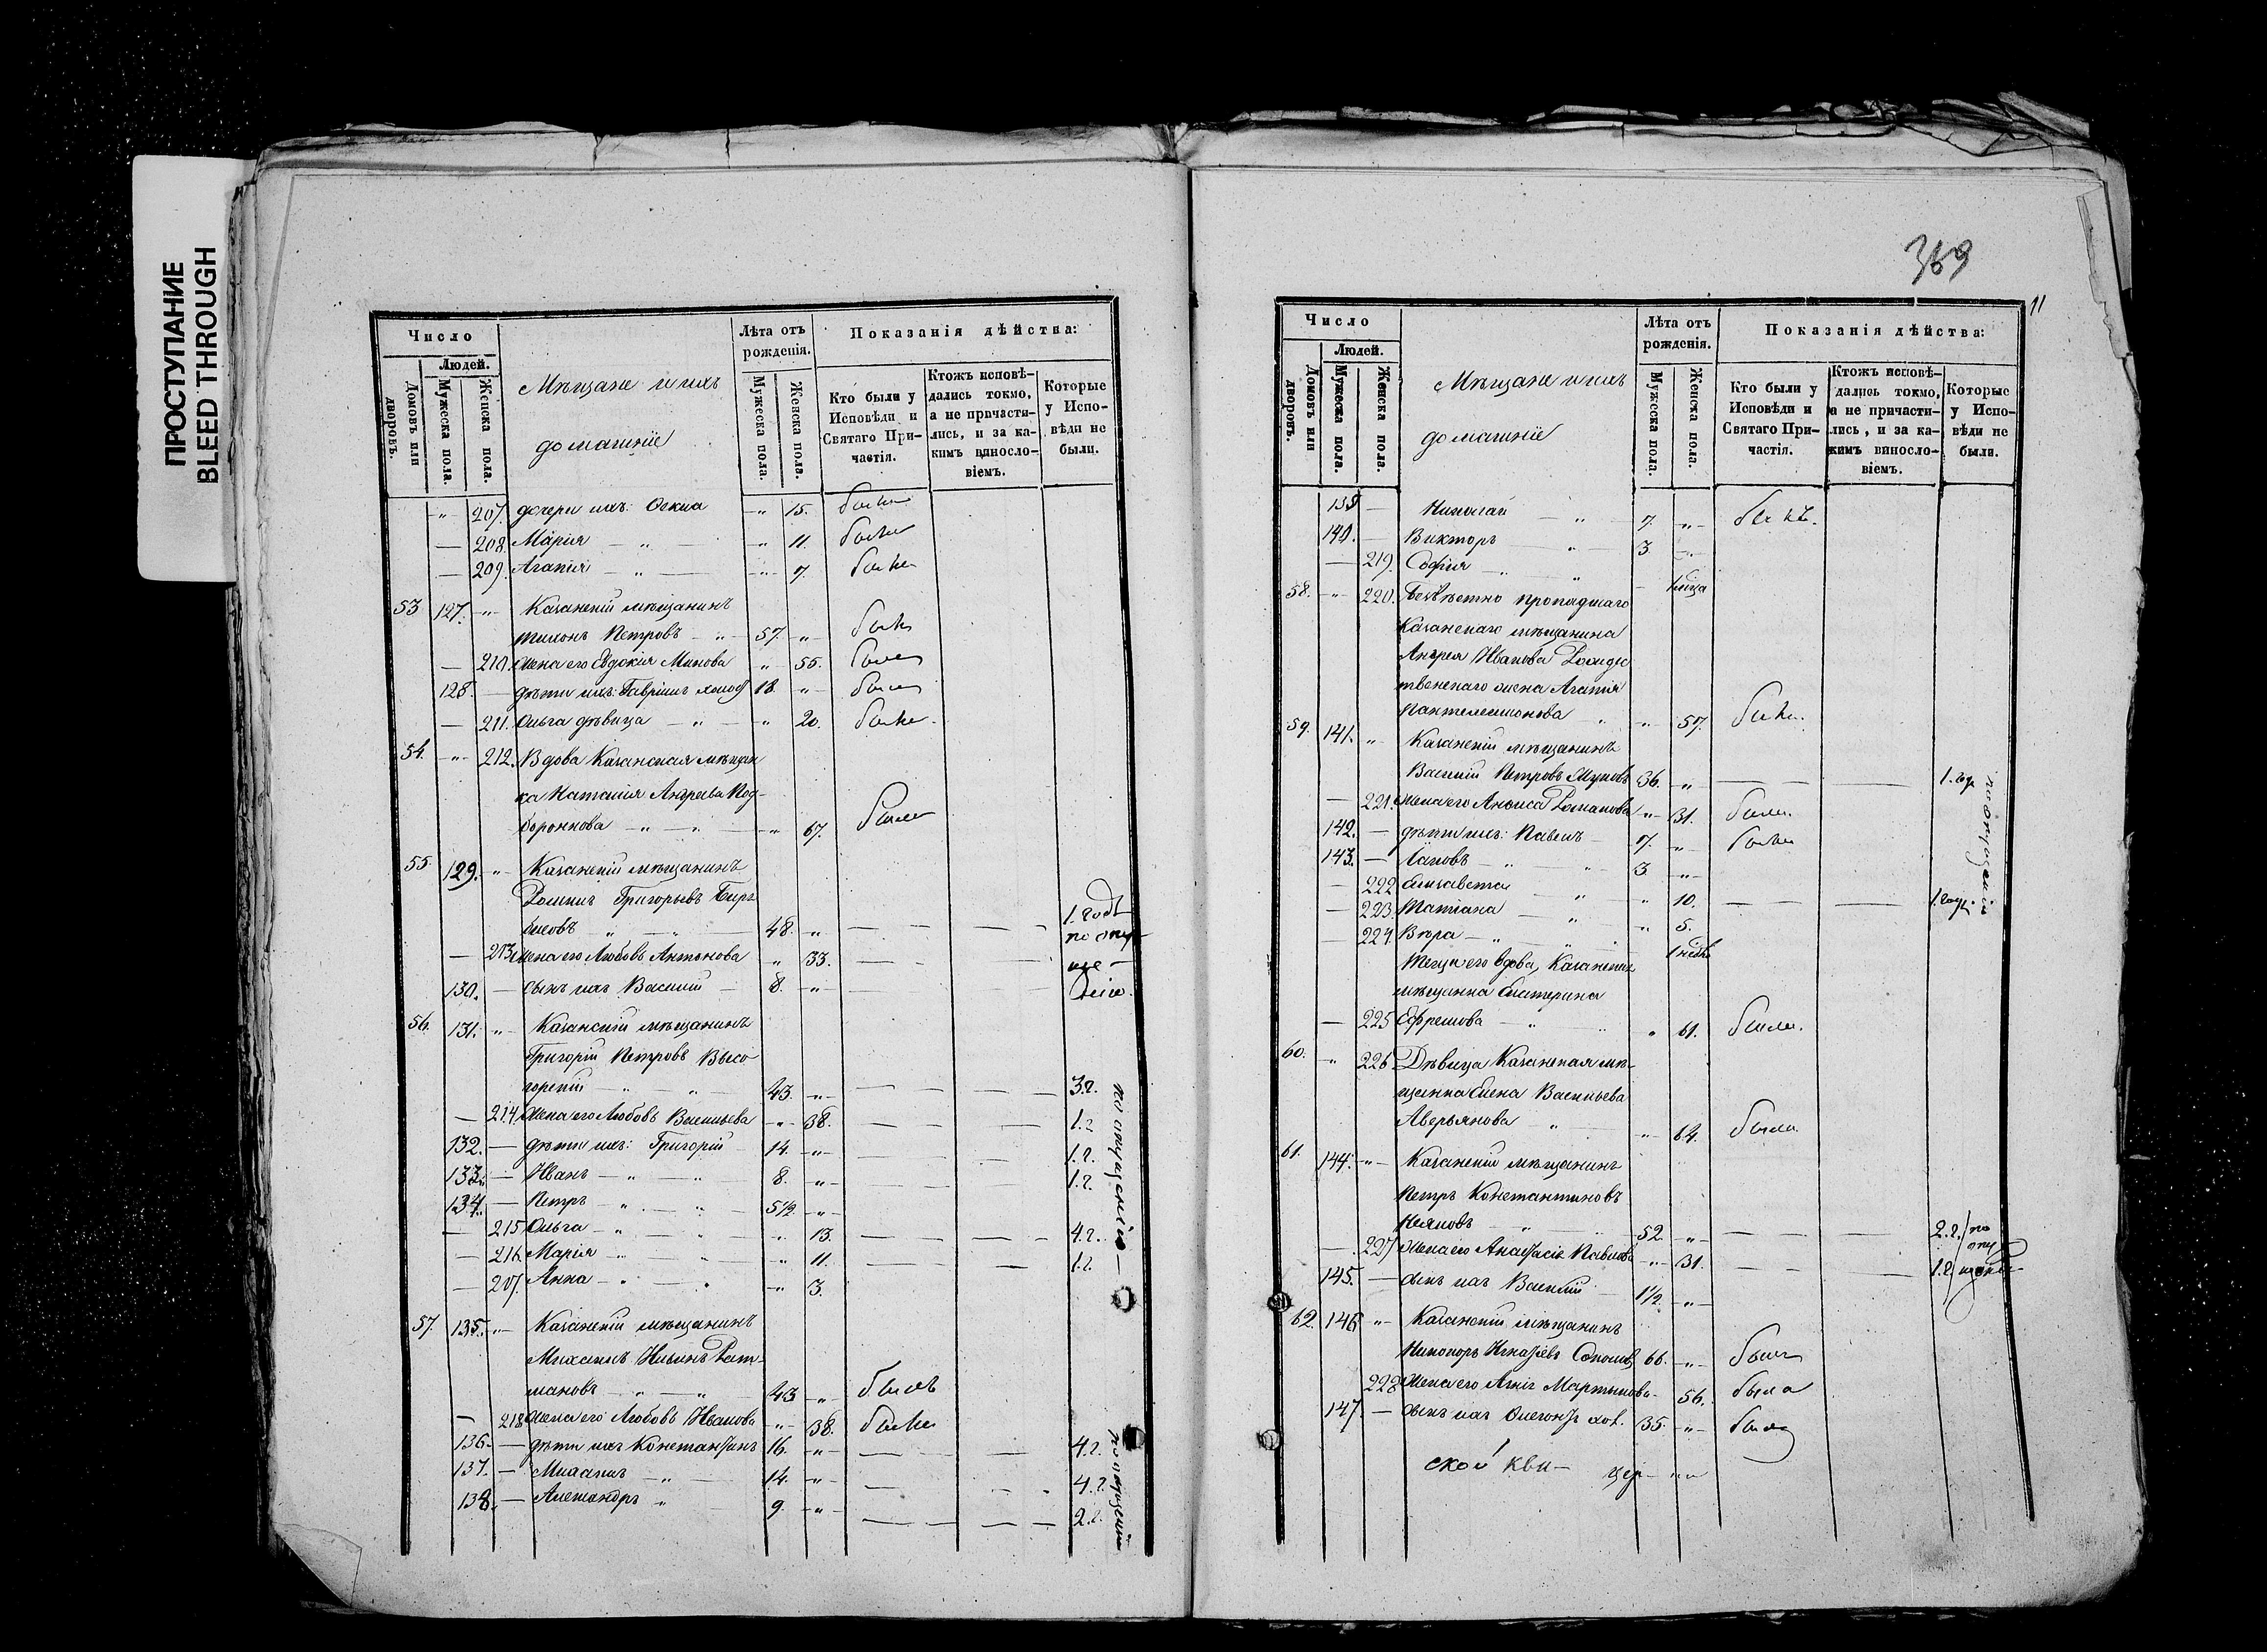 ПРОСТУПАНИЕ
BLEED THROUGH
Число
Людей.
Домовъ или дворовъ.
Мужеска пола.
Женска пола.
Мѣщане и ихъ
домашніе
Лѣта отъ рожденія.
Мужеска пола.
Женска пола.
Показанія дѣйства:
Кто были у Исповѣди и Святаго Причастія.
Ктожъ исповѣдались токмо, а не причастились, и за какимъ винословіемъ.
Которые у Исповѣди не были.
„ 207. дочери ихъ: „ 15. были
— 208. Марія — „ — „ 11. были
— 209. Агапія — „ — „ 7. были
53 127. „ Казанскій мѣщанинъ
Тихонъ Петровъ — „ 57. „
— 210. жена его Евдокія „ 55.
128. — дѣти ихъ: Гавріилъ холост 18. „
— 211. Ольга дѣвица — „ — „ 20. были
54. „ 212. Вдова Казанская мѣщан
ка Наталія Андреева Под-
„ 67. были
55. 129. „ Казанскій мѣщанинъ
Григорьевъ
— „ — „ 48. „ — — 1. годъ
— 213. жена его Любовь Антонова „ 33. — — по опу-
ще-
130. — сынъ ихъ Василій — 8. „ — — нію.
56. 131. „ Казанскій мѣщанинъ
Григорій Петровъ Высо
горскій — „ — „ 43. „ — — 3.г.
— 214. жена его Любовь Васильева „ 38. — — 1.г
132. — дѣти ихъ: Григорій 14. „ — — 1.г.
133. — Иванъ — „ — „ 8. „ 1.г.
134. — Петръ — „ — „ 5½. „
— 215. Ольга — „ — „ 13. — — 4.г.
— 216. Марія — „ „ 11. — — 1.г.
— 217. Анна — „ — „ „ 3.
по опущенію
57. 135. „ Казанскій мѣщанинъ
Михаилъ Ильинъ Рат-
мановъ — „ — „ 43 „ былъ
— 218. жена его Любовь Иванова „ 38. были
136. — дѣти ихъ Константинъ 16. „ — — 4.г.
137. — Михаилъ — „ — 14. „ — — 4.г.
138. — Александръ „ 9. „ — — 2.г.
по опущенію
369
11
Число
Людей.
Домовъ или дворовъ.
Мужеска пола.
Женска пола.
Мѣщане и ихъ
домашніе
Лѣта отъ рожденія.
Мужеска пола.
Женска пола.
Показанія дѣйства:
Кто были у Исповѣди и Святаго Причастія.
Ктожъ исповѣдались токмо, а не причастились, и за какимъ винословіемъ.
Которые у Исповѣди не были.
139 — Николай — „ — 7. „ былъ.
140. — Викторъ — „ — 3. „
— 219. Софія — „ „
58. „ 220. Безвѣстно пропадшаго
Казанскаго мѣщанина
Андрея Иванова Рожде
ственскаго жена Агапія
Пантелеимонова „ „ 57. были.
59. 141. „ Казанскій мѣщанинъ
Василій Петровъ 36. „ — — 1. годъ
— 221. жена его Анфиса Романова „ 31. были.
142. — дѣти ихъ: Павелъ — 7. „ были
143. — Іаковъ — „ — „ 3. „
— 222. Елисавета „ „ 10. — — 1.годъ.
— 223. Татіана — „ „ 5.
— 224. Вѣра — „ — „
по опущенію
Теща его вдова, Казанская
мѣщанка Екатерина
— 225 Ефремова — „ „ 61. были.
60. „ 226 Дѣвица Казанская мѣ-
щанка Елена Васильева
Аверьянова „ „ 64. были
61. 144. „ Казанскій мѣщанинъ
Петръ Константиновъ
— „ 52. „ — — 2.г. по
опу
— 227 жена его Анастасія Павлова „ 31. — — 1.г. щенію
145. — сынъ ихъ Василій — 1½. „
62. 146 „ Казанскій мѣщанинъ
Никифоръ Игнатьевъ 66. „ былъ
228 жена его Мартынова 56. была
147. — сынъ ихъ хол. 35 „ былъ